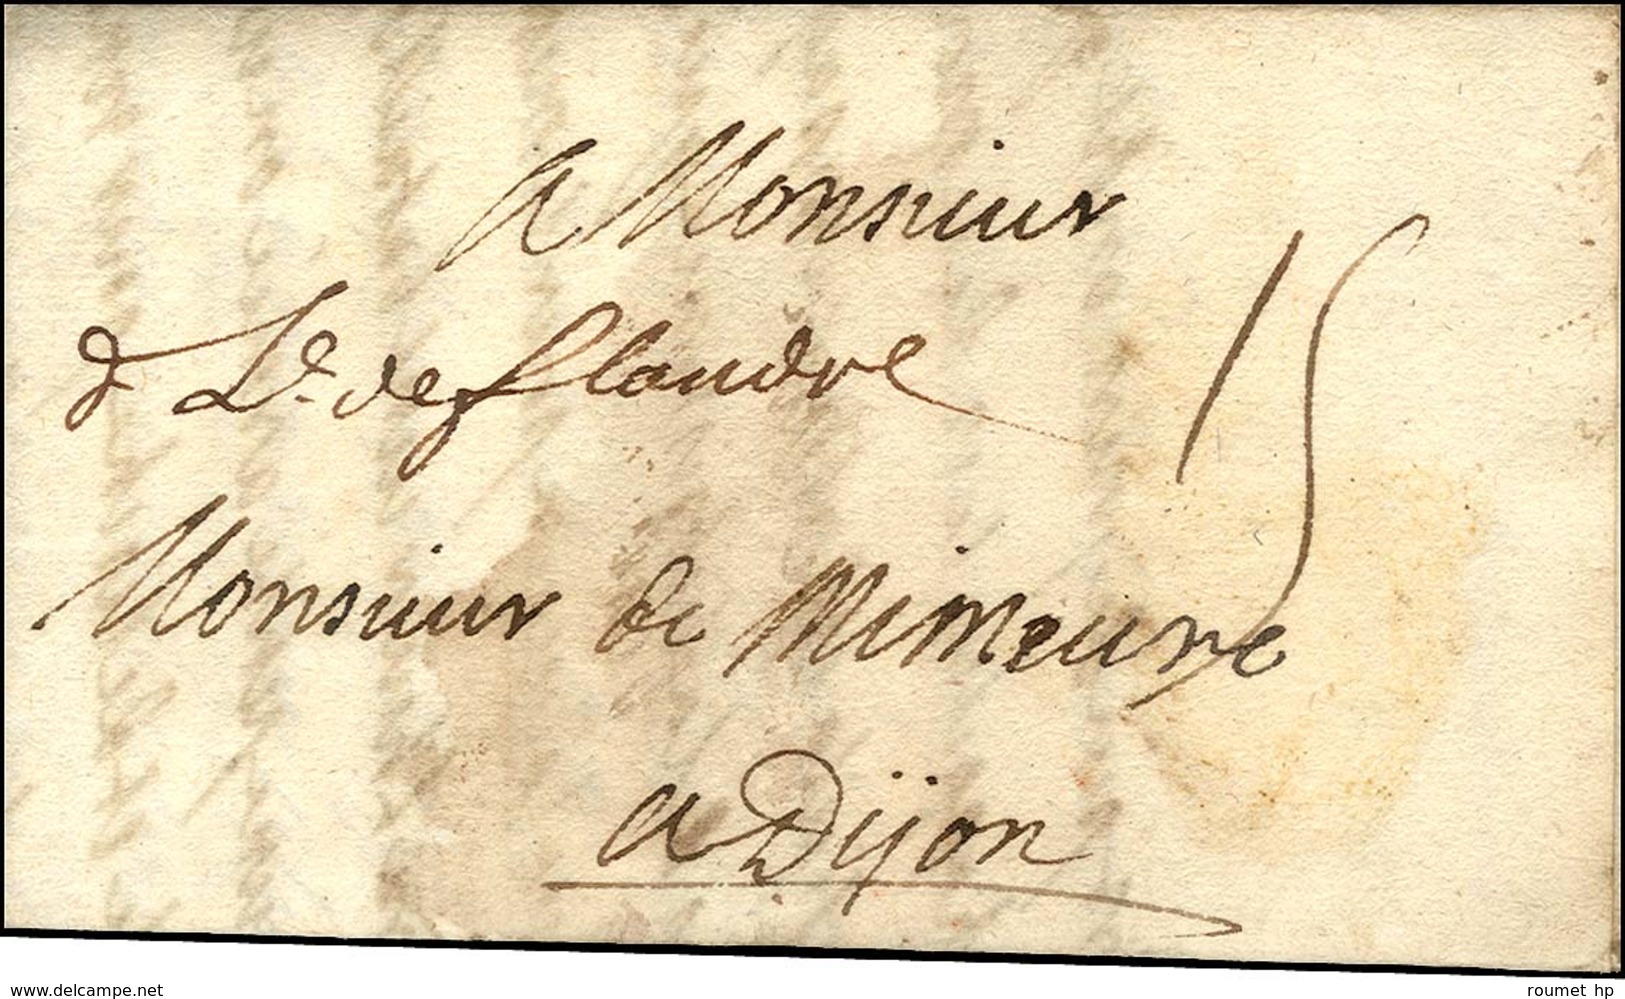 a Monsieur
d L.e de flandre
15
Monsieur de Mimeure
a Dijon
www.delcampe.net
roumet hp